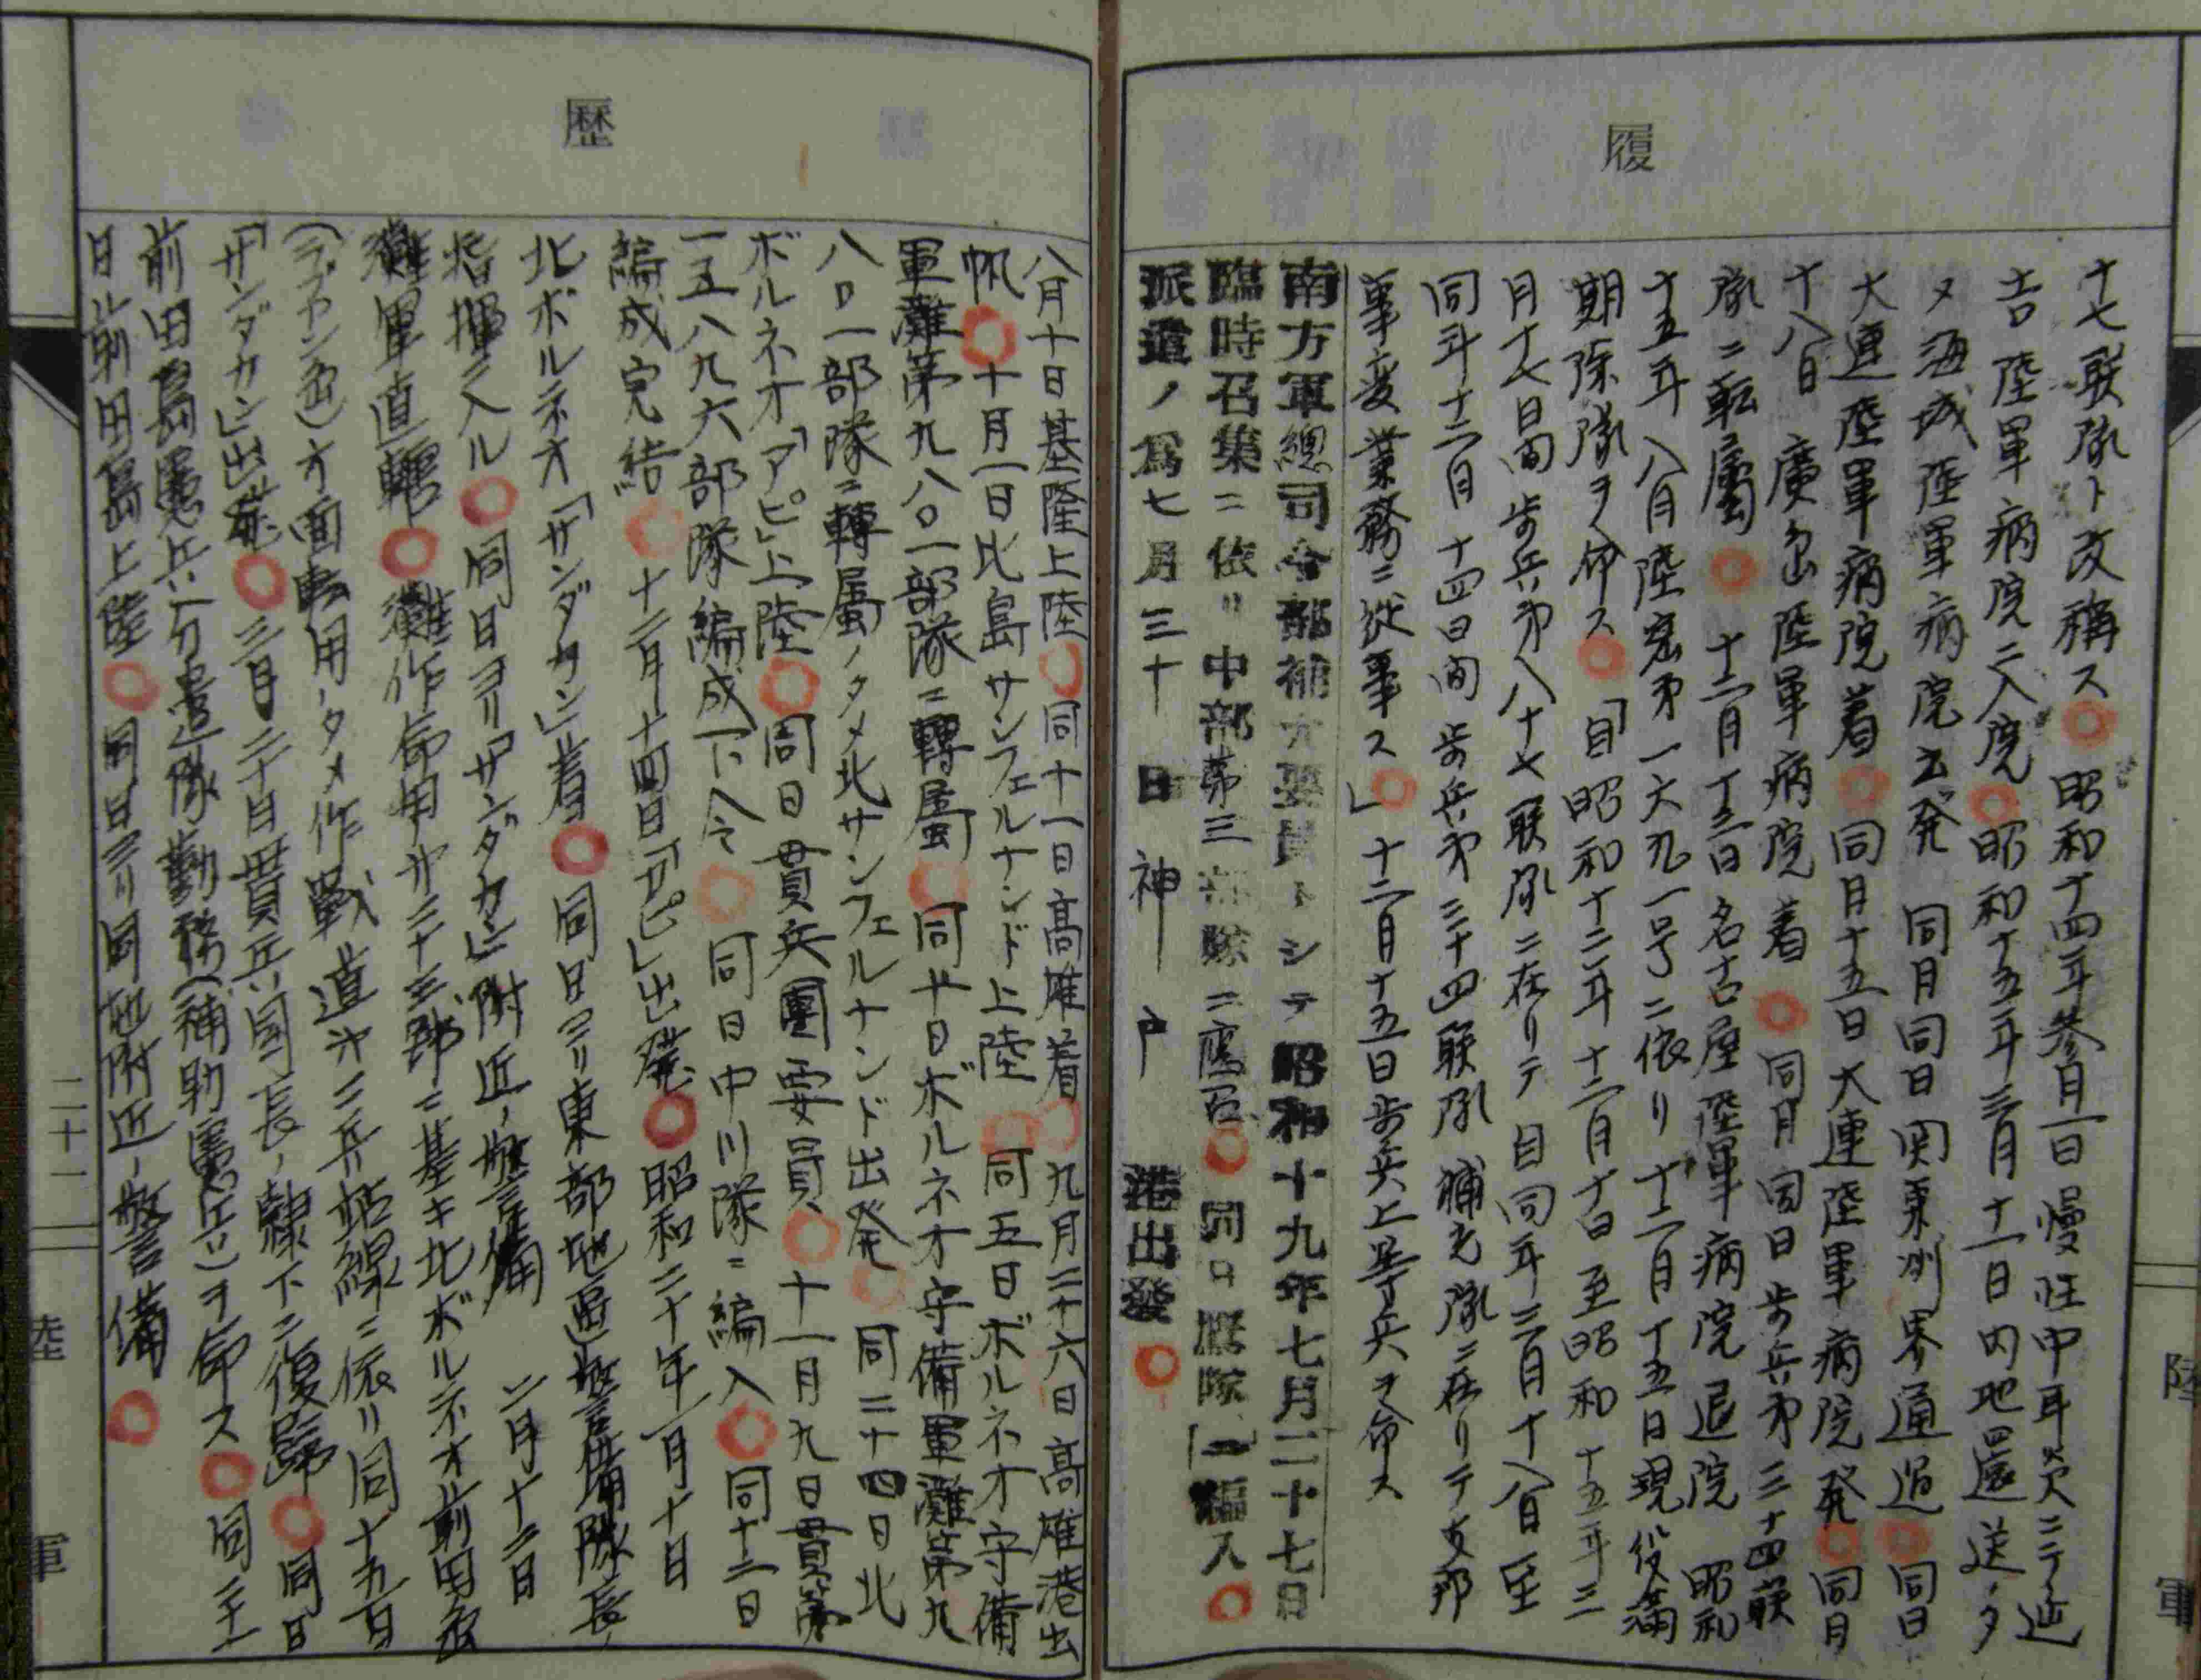 履
十七聯隊ト改稱ス 昭和十四年参月一日慢性中耳炎ニテ延
吉陸軍病院ニ入院 昭和十五年三月十一日内地還送ノタ
メ海城陸軍病院出発 同月同日関東州界通過 同日
大連陸軍病院着 同月十五日大連陸軍病院発 同月
十八日 廣島陸軍病院着 同月同日歩兵第三十四聯
隊ニ転屬 十二月十三日名古屋陸軍病院退院 昭和
十五年八月陸密第一六九一号ニ依リ十二月十五日現役満
期除隊ヲ命ス 「自昭和十二年十二月十日至昭和十五年三
月十七日間歩兵第八十七聯隊ニ在リテ自同年三月十八日至
同年十二月十四日間歩兵第三十四聯隊補充隊ニ在リテ支那
事変業務ニ從事ス」 十二月十五日歩兵上等兵ヲ命ス
南方軍總司令部補充要員トシテ昭和十九年七月二十七日
臨時召集ニ依リ中部第三部隊ニ應召 同日應隊ニ編入
派遣ノ爲七月三十日神戸港出發
陸軍
歴
八月十日基隆上陸 同十一日高雄着 九月二十六日高雄港出
帆 十月一日比島サンフェルナンド上陸 同五日ボルネオ守備
軍灘第九八〇一部隊ニ轉属 同十日ボルネオ守備軍灘第九
八〇一部隊ニ轉属ノタメ北サンフェルナンド出発 同二十四日北
ボルネオ「アピ」上陸 同日貫兵團要員 十一月九日貫第
一五八九六部隊編成下令 同日中川隊ニ編入 同十二日
編成完結 十二月十四日「アピ」出發 昭和二十年一月十日
北ボルネオ「サンダカン」着 同日ヨリ東部地區警備隊長ノ
指揮ニ入ル 同日ヨリ「サンダカン」附近ノ警備 二月十三日
灘軍直轄 灘作命甲第三十三號ニ基キ北ボルネオ前田島
(ラブアン島)方面転用ノタメ作戰 道第二兵站線ニ依リ同十五日
「サンダカン」出發 三月二十日貫兵團長ノ隷下ニ復歸 同日
前田島憲兵分遣隊勤務(補助憲兵)ヲ命ス 同二十一
日前田島上陸 同日ヨリ同地附近ノ警備
二十一
陸軍